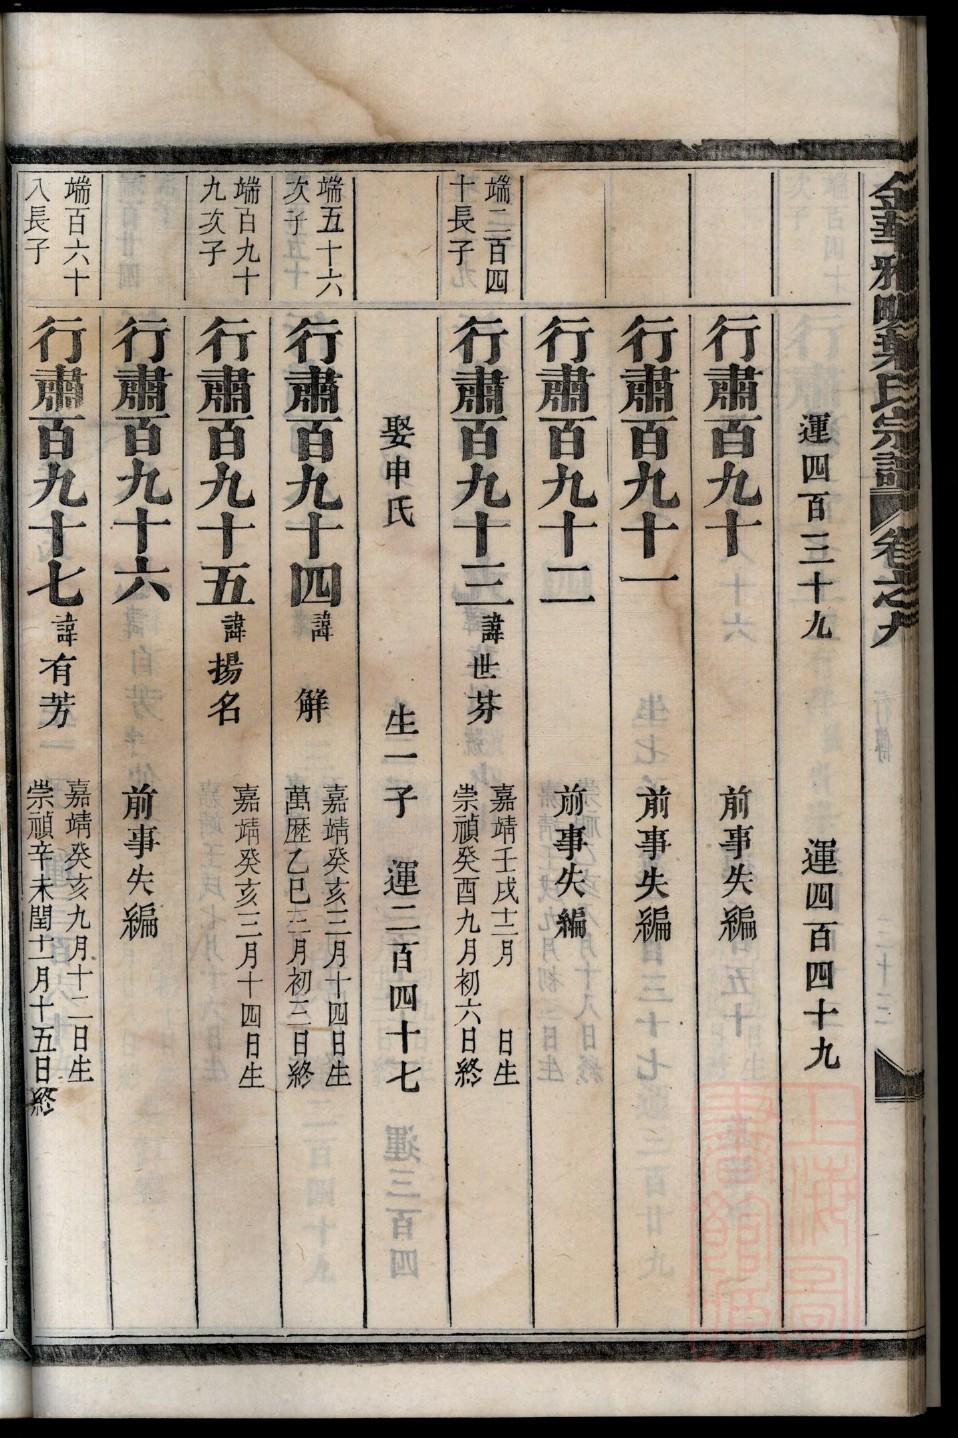 金華雅畈葉氏宗譜 卷之九
運四百三十九 運四百四十九
行肅百九十 前事失編
行肅百九十一 前事失編
行肅百九十二 前事失編
端二百四
十長子
行肅百九十三 諱世芬
嘉靖壬戌十二月 日生
崇禎癸酉九月初六日終
娶申氏 生一子 運二百四十七
端五十六
次子
行肅百九十四 諱 解
嘉靖癸亥三月十四日生
萬歷乙巳三月初三日終
端百九十
九次子
行肅百九十五 諱揚名
嘉靖癸亥三月十四日生
行肅百九十六 前事失編
端百六十
八長子
行肅百九十七 諱有芳
嘉靖癸亥九月十二日生
崇禎辛未閏十一月十五日終